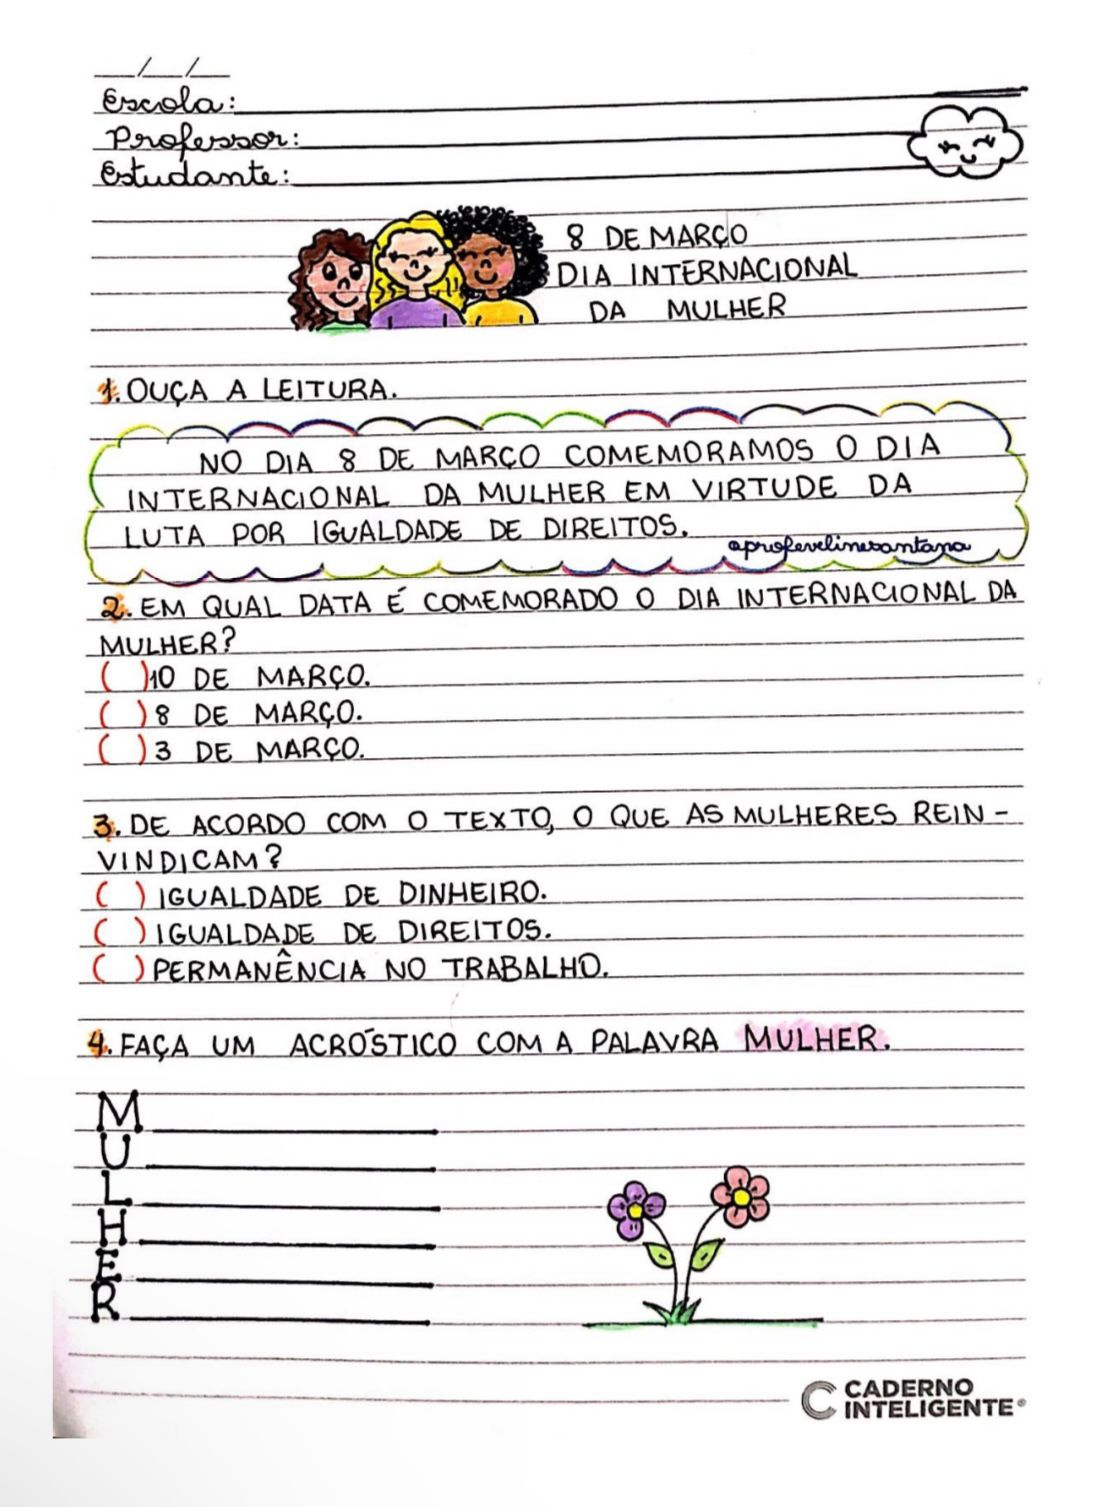 __/__/__
Escola:
Professor:
Estudante:
8 DE MARÇO
DIA INTERNACIONAL
DA MULHER
1. OUÇA A LEITURA.
NO DIA 8 DE MARÇO COMEMORAMOS O DIA
INTERNACIONAL DA MULHER EM VIRTUDE DA
LUTA POR IGUALDADE DE DIREITOS.
@profevelinesantana
2. EM QUAL DATA É COMEMORADO O DIA INTERNACIONAL DA
MULHER?
( ) 10 DE MARÇO.
( ) 8 DE MARÇO.
( ) 3 DE MARÇO.
3. DE ACORDO COM O TEXTO, O QUE AS MULHERES REIN-
VINDICAM?
( ) IGUALDADE DE DINHEIRO.
( ) IGUALDADE DE DIREITOS.
( ) PERMANÊNCIA NO TRABALHO.
4. FAÇA UM ACRÓSTICO COM A PALAVRA MULHER.
M
U
L
H
E
R
CADERNO
INTELIGENTE®